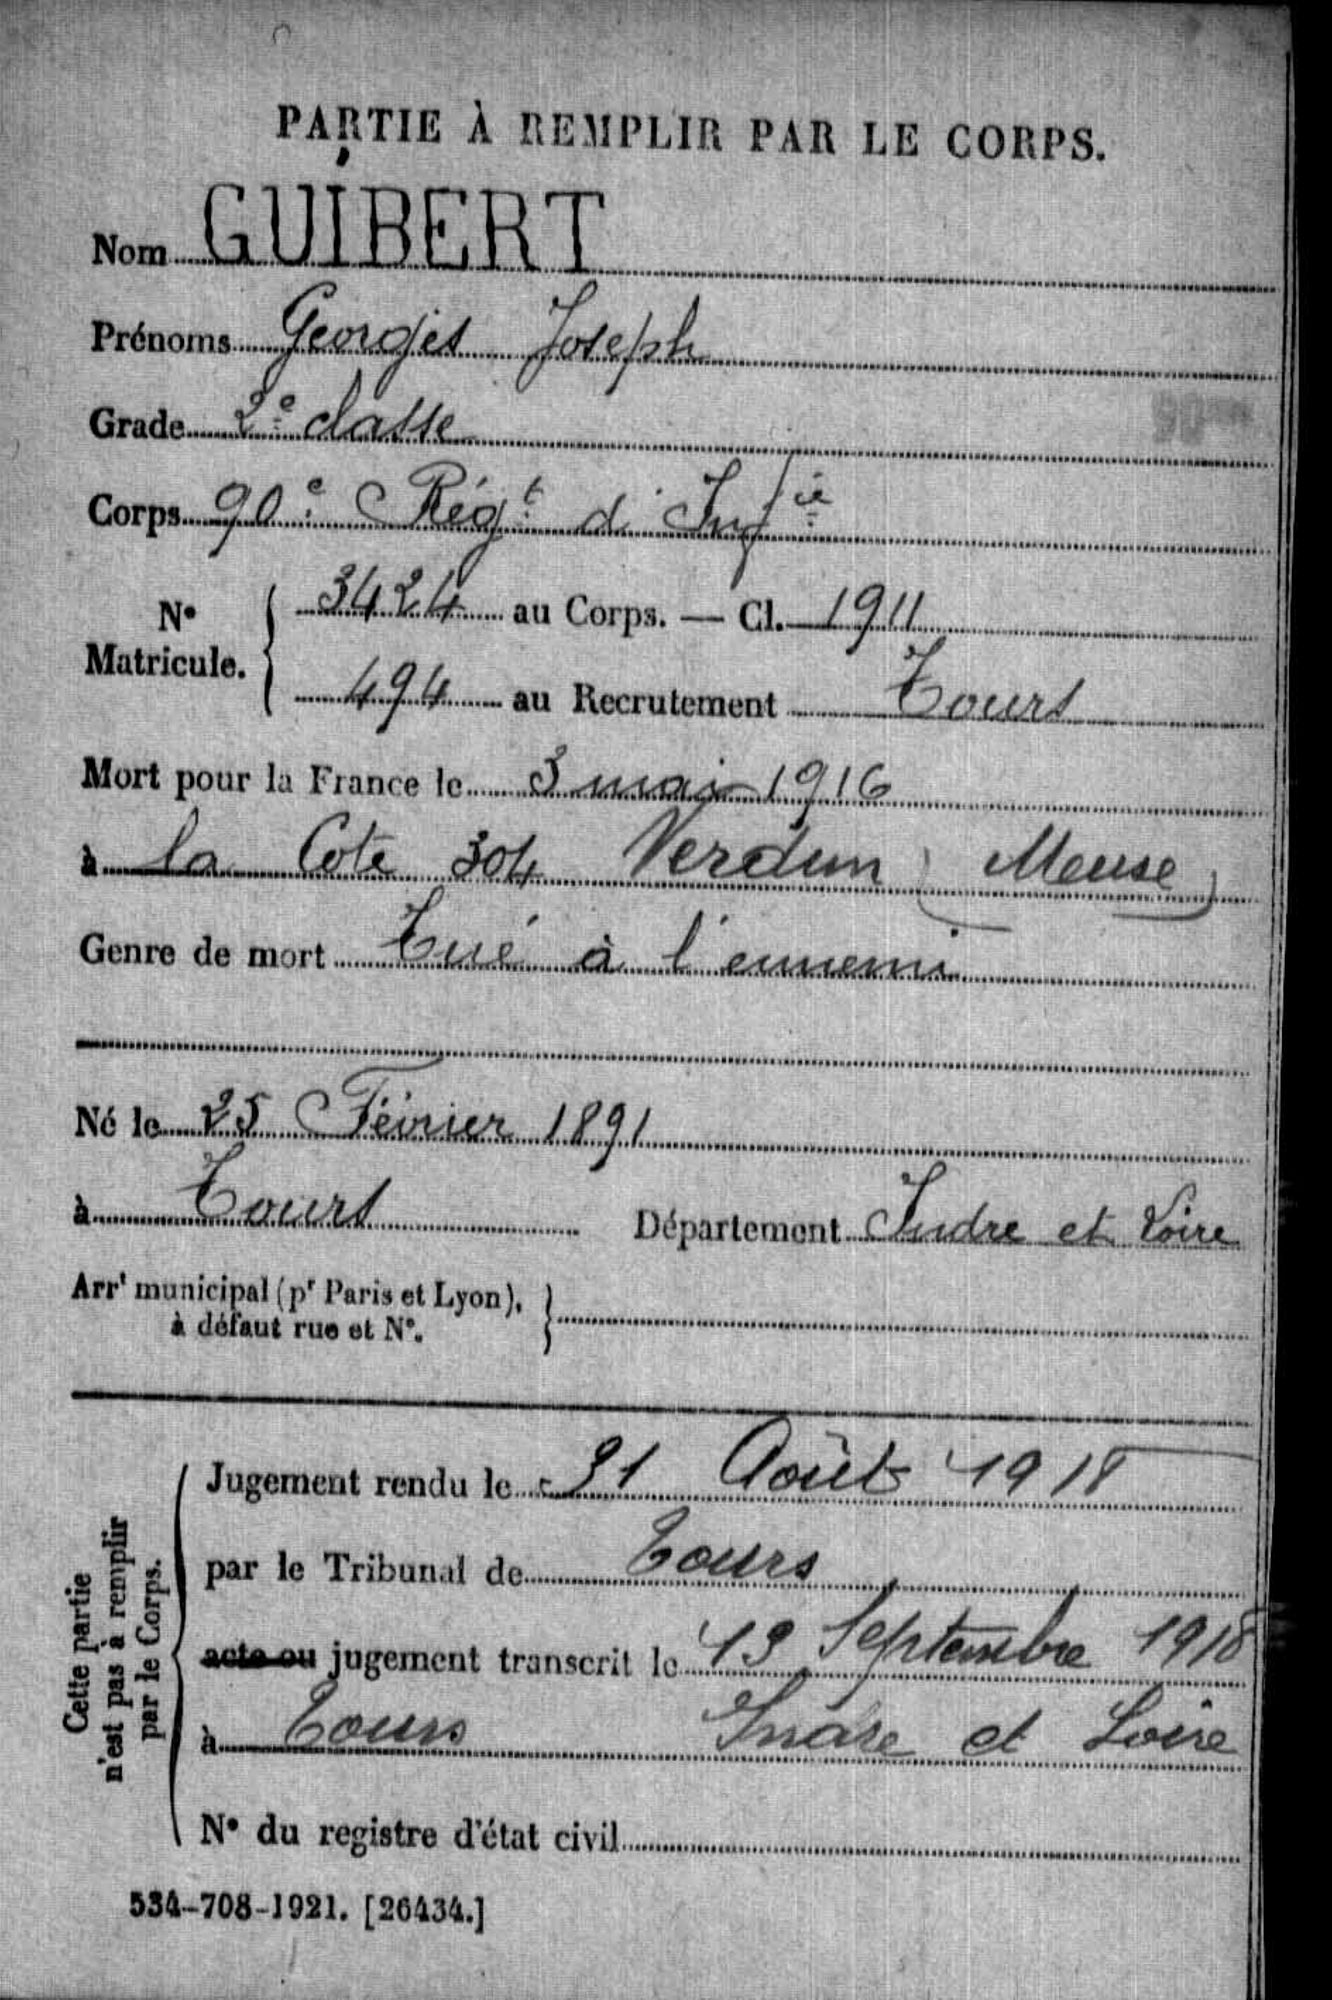 PARTIE À REMPLIR PAR LE CORPS.
Nom GUIBERT
Prénoms Georges Joseph
Grade 2e classe
Corps 90e Régt d'Infie
N° Matricule. 3424 au Corps. — Cl. 1911
494 au Recrutement Tours
Mort pour la France le 3 mai 1916
à la Cote 304 Verdun (Meuse)
Genre de mort Tué à l'ennemi
Né le 25 Février 1891
à Tours Département Indre et Loire
Arrt municipal (pr Paris et Lyon),
à défaut rue et N°.
Cette partie
n'est pas à remplir
par le Corps.
Jugement rendu le 31 Août 1918
par le Tribunal de Tours
acte ou jugement transcrit le 13 Septembre 1918
à Tours Indre et Loire
N° du registre d'état civil
534-708-1921. [26434.]